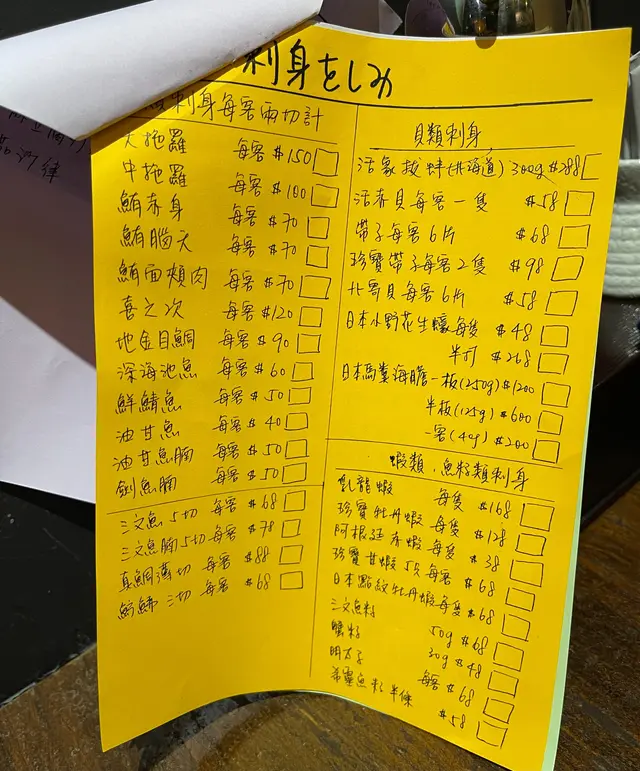 刺身をしみ
刺身每客兩切計
大拖羅 每客 $150
中拖羅 每客 $100
鮪赤身 每客 $70
鮪腦天 每客 $70
鮪面頰肉 每客 $70
喜之次 每客 $120
地金目鯛 每客 $90
深海池魚 每客 $60
鮮鯖魚 每客 $50
油甘魚 每客 $40
油甘魚腩 每客 $50
劍魚腩 每客 $50
三文魚 5切 每客 $68
三文魚腩 5切 每客 $78
真鯛薄切 每客 $88
三切 每客 $68
貝類刺身
活象拔蚌(北海道) 300g $288
活赤貝每客一隻 $58
帶子每客6片 $68
珍寶帶子每客2隻 $98
北寄貝每客6片 $58
日本小野花生蠔每隻 $48
半打 $268
日本馬糞海膽一板(250g) $1200
半板(125g) $600
一客(40g) $200
蝦類、魚籽類刺身
龍蝦 每隻 $168
珍寶牡丹蝦 每隻 $128
阿根廷赤蝦 每隻 $38
珍寶甘蝦 5只 每客 $68
日本點紋牡丹蝦每隻 $68
三文魚籽 50g $68
蟹籽 30g $48
明太子 每客 $68
希靈魚籽 半條 $58